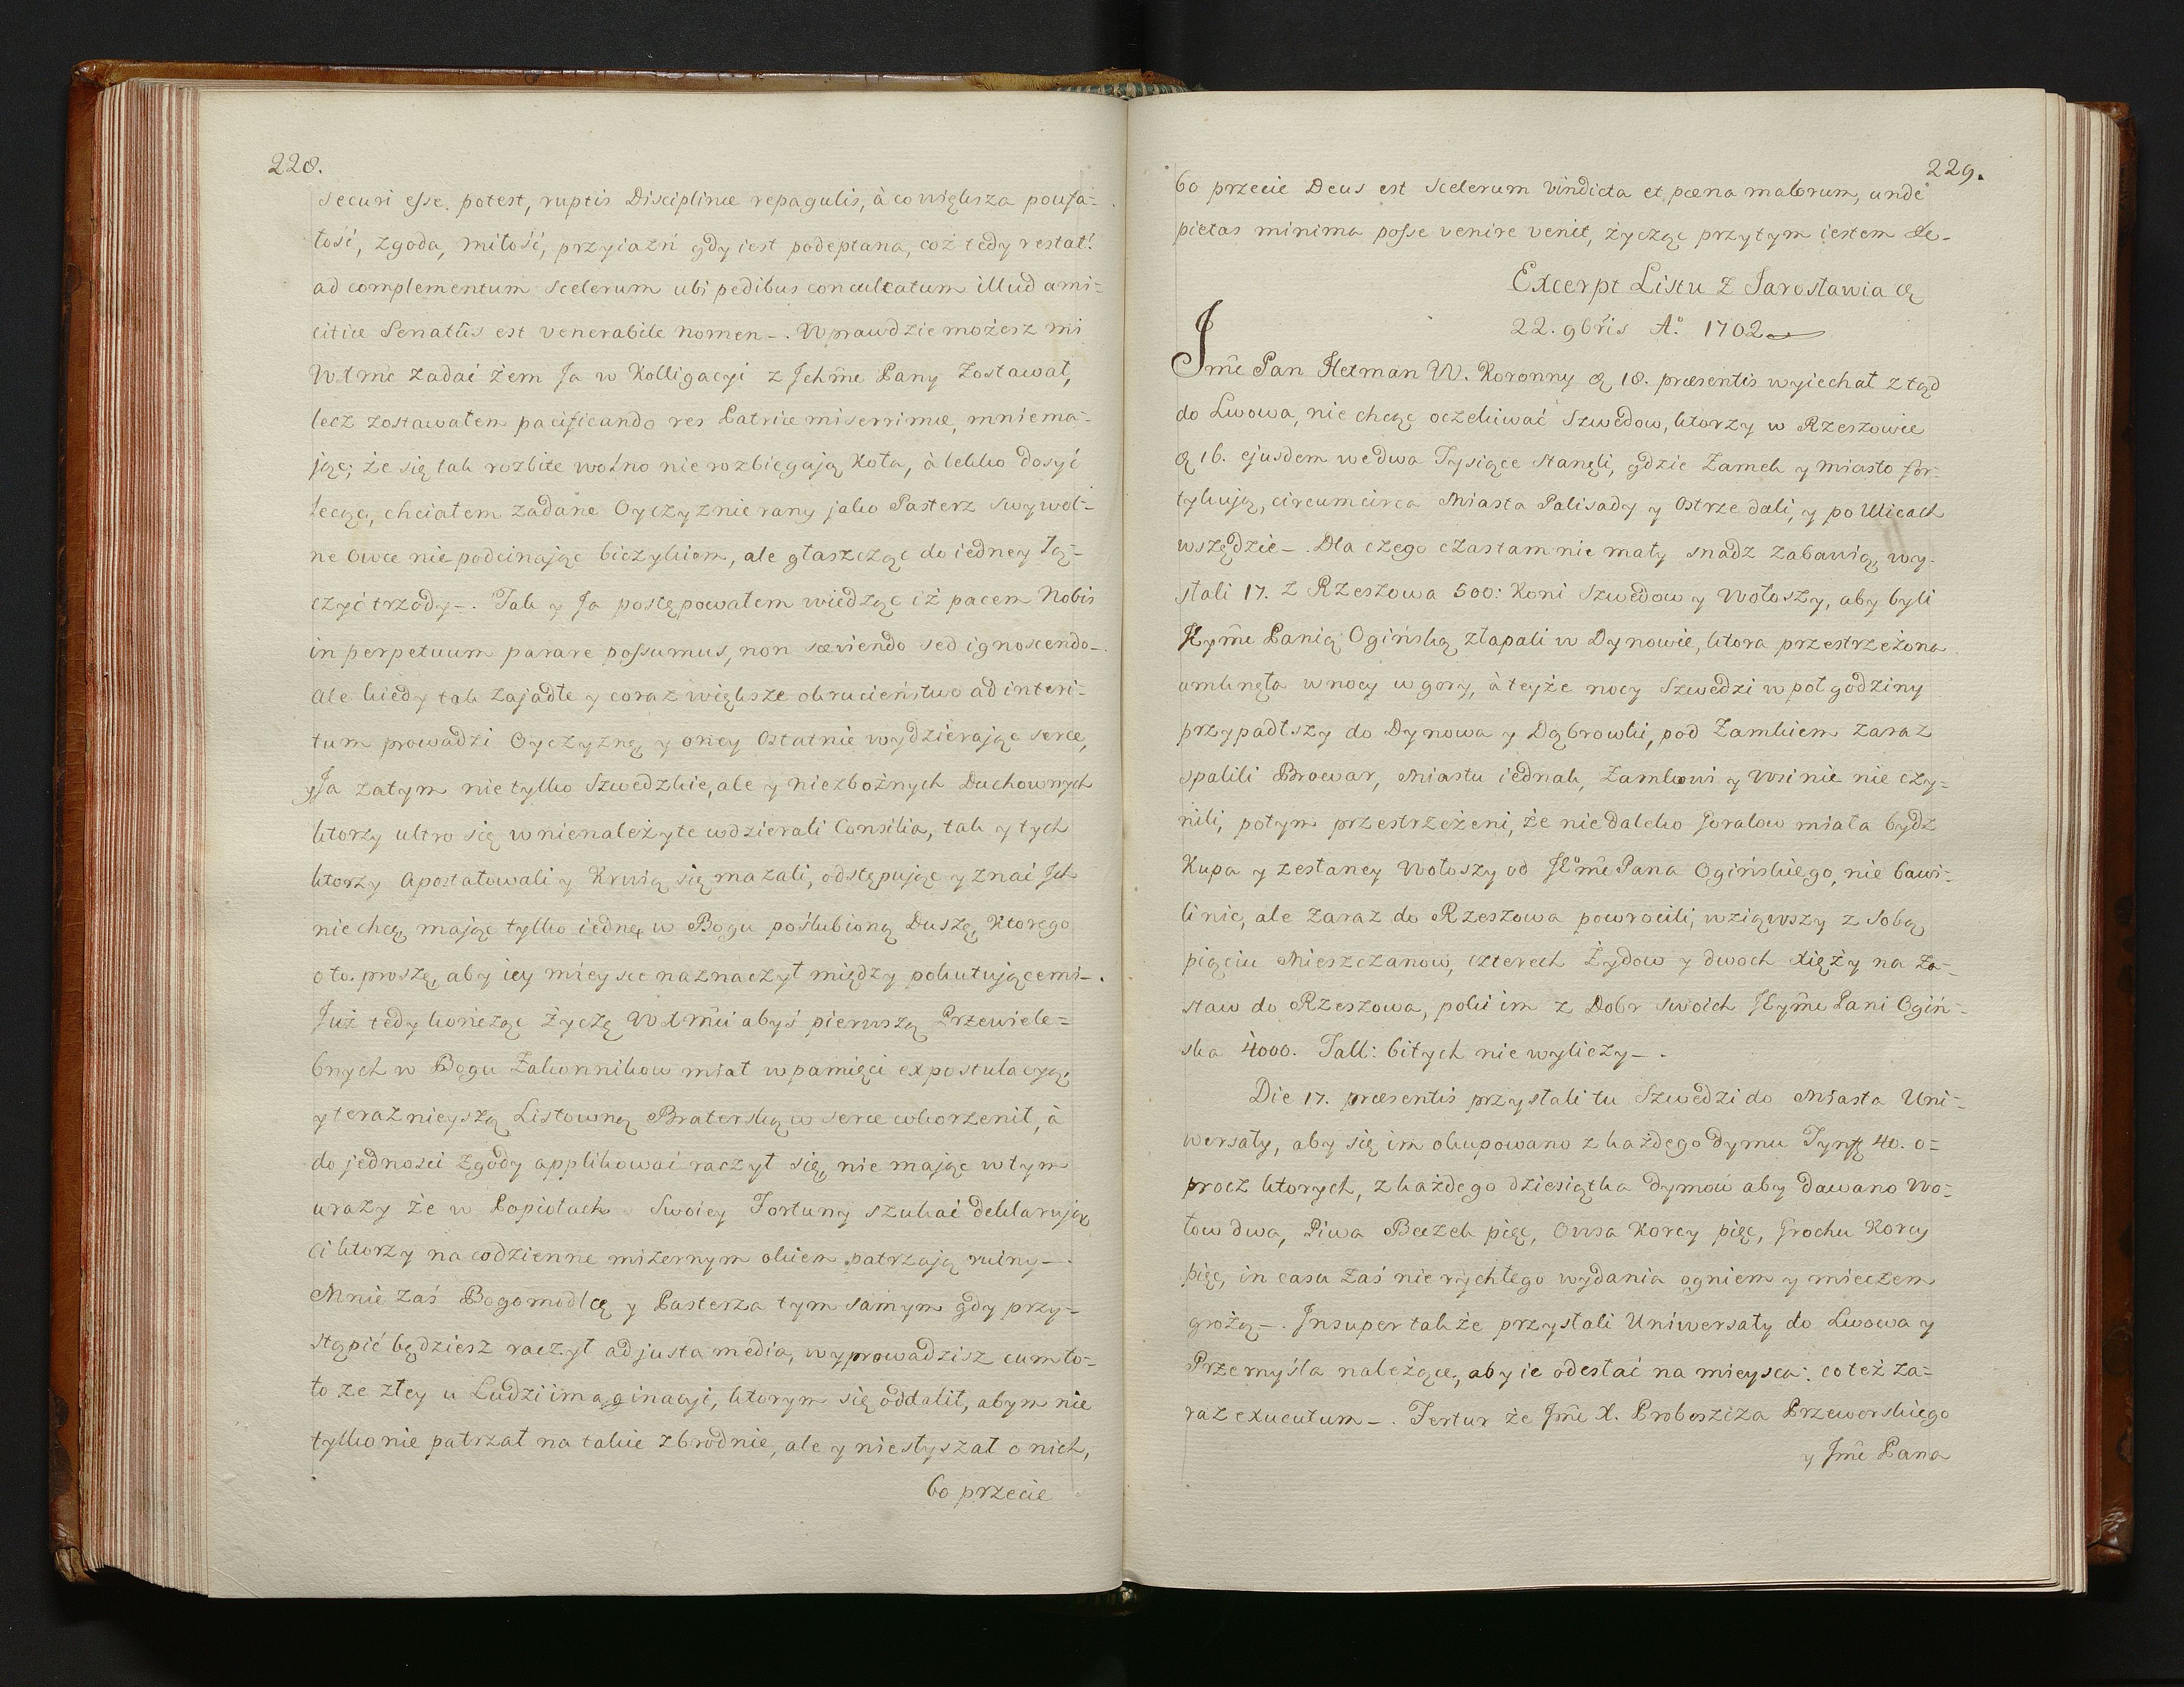 228.
securi esse potest, ruptis Disciplinæ repagulis, à co większa poufa-
łość, zgoda, miłość, przyiaźń gdy iest podeptana, coż tedy restat?
ad complementum scelerum ubi pedibus conculcatum illud ami-
citiæ Senatûs est venerabile nomen -. Wprawdzie możesz mi
WXmć zadać żem Ja w Kolligacyi z Jchmć Pany Zostawał,
lecz zostawałem pacificando res Patriæ miserrimæ, mniema-
jąc, że się tak rozbite wolno nie rozbiegają Koła, à lekko dosyć
lecząc, chciałem zadane Oyczyznie rany jako Pasterz swywol-
ne Owce nie podcinając biczykiem, ale głaszcząc do iedney Łą-
czyć trzody -. Tak y Ja postępowałem wiedząc iż pacem Nobis
in perpetuum parare possumus, non sæviendo sed ignoscendo -.
Ale kiedy tak zajadłe y coraz większe okrucieństwo ad interi-
tum prowadzi Oyczyznę y oney Ostatnie wydzierając serce,
y Ja zatym nie tylko Szwedzkie, ale y niezbożnych Duchownych
ktorzy ultro się w nienależyte wdzierali Consilia, tak y tych
ktorzy Apostatowali y Krwią się mazali, odstępuję y znać Jch
nie chcę, mając tylko iednę w Bogu poślubioną Duszę, Ktorego
o to proszę, aby iey mieysce naznaczył między pokutującemi -.
Już tedy kończąc Życzę WXmći abyś pierwszą Przewiele-
bnych w Bogu Zakonnikow miał w pamięci expostulacyą,
y teraznieyszą Listowną Braterską w serce wkorzenił, à
do jedności Zgody applikować raczył się, nie mając w tym
urazy że w Popiołach Swoiey Fortuny szukać deklarują
ci ktorzy na codzienne mizernym okiem patrzają ruiny -.
Mnie zaś Bogomodlcę y Pasterza tym samym gdy przy-
stąpić będziesz raczył ad justa media, wyprowadzisz cum to-
to ze złey u Ludzi imaginacyi, ktorym się oddalił, abym nie
tylko nie patrzał na takie zbrodnie, ale y nie słyszał o nich,
bo przecie
229.
bo przecie Deus est scelerum vindicta et pœna malorum, unde
pietas minima posse venire venit, życząc przytym iestem &c -
Excerpt Listu z Jarosławia d
22. 9bris Aº. 1702
Jmć Pan Hetman W. Koronny d 18. præsentis wyiechał ztąd
do Lwowa, nie chcąc oczekiwać Szwedow, ktorzy w Rzeszowie
d 16. ejusdem we dwa Tysiące stanęli, gdzie Zamek y miasto for-
tykują, circumcirca Miasta Palisady y Ostrze dali, y po Ulicach
wszędzie -. Dla czego czas tam nie mały snadz zabawią, wy-
słali 17. z Rzeszowa 500: Koni Szwedow y Wołoszy, aby byli
JEymć Panią Ogińską złapali w Dynowie, ktora przestrzeżona
umknęła w nocy w gory, à teyże nocy Szwedzi w poł godziny
przypadłszy do Dynowa y Dąbrowki, pod Zamkiem zaraz
spalili Browar, Miastu iednak, Zamkowi y Wsi nic nie czy-
nili, potym przestrzeżeni, że niedaleko Goralow miała bydz
Kupa y zesłaney Wołoszy od JEºmć Pana Ogińskiego, nie bawi-
li nic, ale zaraz do Rzeszowa powrocili, wziąwszy z Sobą
pięciu Mieszczanow, czterech Żydow y dwoch Xięży na Za-
staw do Rzeszowa, poki im z Dobr Swoich JEymć Pani Ogiń-
ska 4000. Tall: bitych nie wyliczy -.
Die 17. præsentis przysłali tu Szwedzi do Miasta Uni-
wersały, aby się im okupowano z każdego dymu Tynfę 40. o-
procz ktorych, z każdego dziesiątka dymow aby dawano Wo-
łow dwa, Piwa Beczek pięć, Owsa Korcy pięć, Grochu Korcy
pięć, in casu zaś nie rychłego wydania ogniem y mieczem
grożą -. Jnsuper także przysłali Uniwersały do Lwowa y
Przemyśla należące, aby ie odesłać na mieysca: co też za-
raz exucutum -. Fertur że Jmć X. Proboszcza Przeworskiego
y Jmć Pana